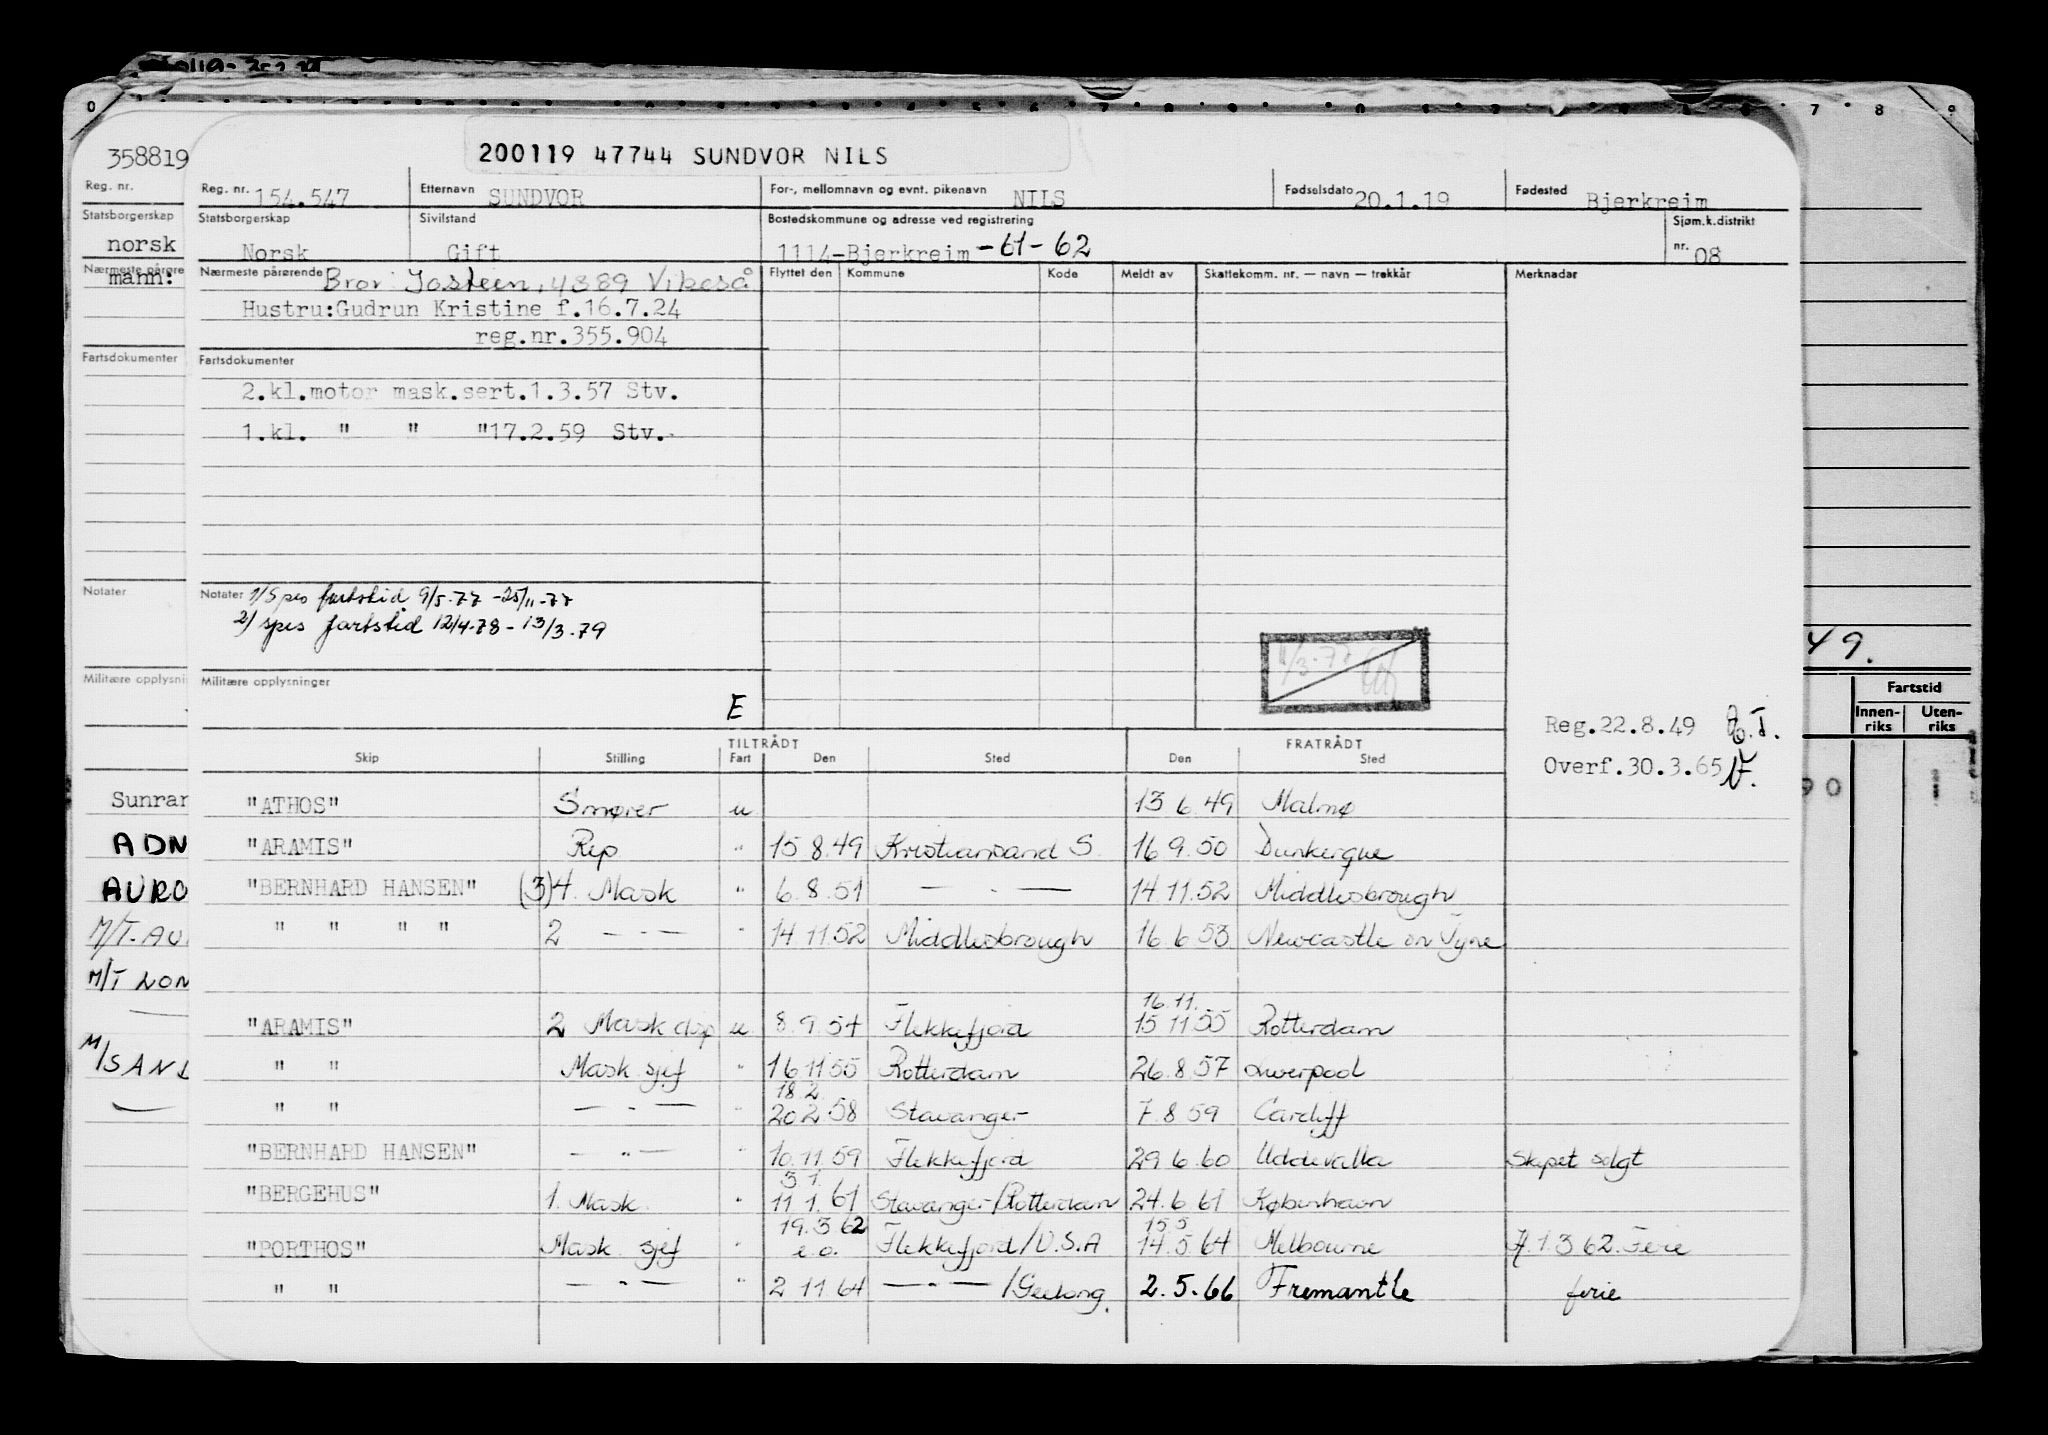 O 7 8 9
358819
200119 47744 SUNDVOR NILS
Reg. nr.
Reg. nr. 154.547 Etternavn SUNDVOR For-, mellomnavn og evnt. pikenavn NILS Fødselsdato 20.1.19 Fødested Bjerkreim
Statsborgerskap
norsk
Statsborgerskap Norsk Sivilstand Gift Bostedskommune og adresse ved registrering 1114-Bjerkreim -61-62 Sjøm.k.distrikt nr. 08
Nærmeste pårøre
mann:
Nærmeste pårørende Bror Jostein, 4389 Vikeså Flyttet den Kommune Kode Meldt av Skattekomm. nr. — navn — trekkår Merknader
Hustru:Gudrun Kristine f.16.7.24
reg.nr.355.904
Fartsdokumenter Fartsdokumenter
2.kl.motor mask.sert.1.3.57 Stv.
1.kl. " " "17.2.59 Stv.
Notater Notater 1/ Spes fartstid 9/5-77 -25/11-77
2/ spes fartstid 12/4-78 - 13/3-79
11/3-77
49.
Militære opplysni Militære opplysninger
E
Fartstid
Innen-riks Uten-riks
Reg.22.8.49
Overf.30.3.65
TILTRÅDT FRATRÅDT
Skip Stilling Fart Den Sted Den Sted
Sunrar "ATHOS" Smører u 13 6.49 Malmø
ADN "ARAMIS" Rep " 15 8.49 Kristiansand S. 16 9.50 Dunkerque
AURO "BERNHARD HANSEN" (3)4. Mask " 6.8.51 — - — 14.11.52 Middlesbrough
M/T-AU " " " " 2 — - — " 14 11.52 Middlesbrough 16 6 53 Newcastle on Tyne
M/T LON
16.11.
"ARAMIS" 2 Mask disp u 8.9.54 Flekkefjord 15 11 55 Rotterdam
M/SAND " " Mask sjef " 16 11 55 Rotterdam 26.8.57 Liverpool
18.2.
" " — " — " 20 2 58 Stavanger 7.8 59 Cardiff
"BERNHARD HANSEN" — " — " 10.11 59 Flekkefjord 29 6 60 Uddevalla Skipet solgt
3 1.
"BERGEHUS" 1. Mask " 11 1.61 Stavanger/Rotterdam 24.6 61 København
19.3 62 15 5
"PORTHOS" Mask sjef " e.o. Flekkefjord/U.S.A 14.5 64 Melbourne 1 3 62. Ferie
" " — " — " 2 11 64 — " — /Geelong. 2.5.66 Fremantle ferie